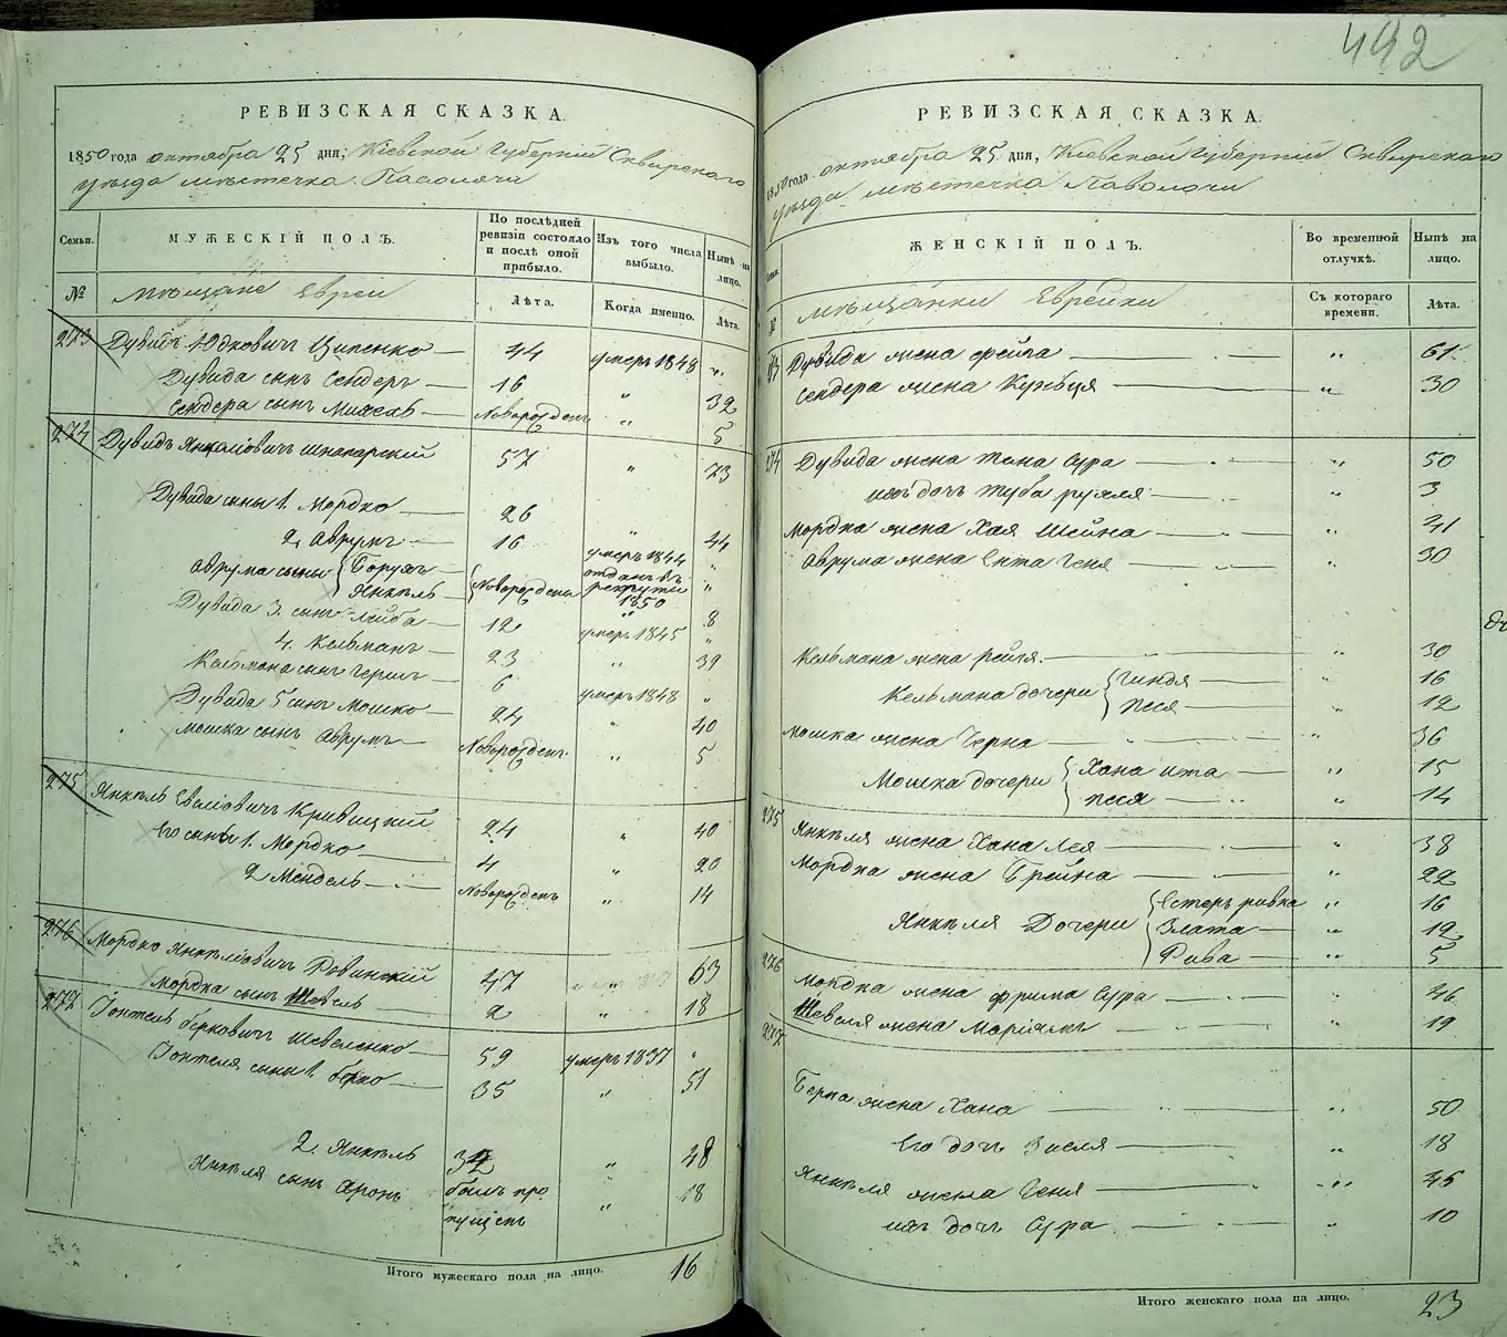 492
РЕВИЗСКАЯ СКАЗКА.
1850 года октября 25 дня, Кіевской Губерніи Сквирскаго
уѣзда мѣстечка Паволочи
Семьи. МУЖЕСКІЙ ПОЛЪ. По послѣдней ревизіи состояло и послѣ оной прибыло. Изъ того числа выбыло. Нынѣ на лицо.
№ Мѣщане Евреи Лѣта. Когда именно. Лѣта.
273 Дувидъ Юдковичъ Ципенко 44 умеръ 1848 "
Дувида сынъ Сендеръ 16 " 32
Сендера сынъ Михель Новорожденъ " 5
274 Дувидъ Янкелiовичъ Шпапарскій 57 " 73
Дувида сыны 1. Мордко 26 " 44
2. Аврумъ 16 умеръ 1844 "
Аврума сыны Борухъ Новорождены отданъ въ рекруты 1850 "
Янкель " 8
Дувида 3. сынъ Лейба 12 умеръ 1845 "
4. Кельманъ 23 " 39
Кельмана сынъ Гершъ 6 умеръ 1848 "
Дувида 5 сынъ Мошко 24 " 40
Мошка сынъ Аврумъ Новорожденъ " 5
275 Янкель Евелiовичъ Кривицкій 24 " 40
Его сыны 1. Мордко 4 " 20
2 Мендель Новорожденъ " 14
276 Мордко Янкелiовичъ Ровинскій 47 " 63
Мордка сынъ Шевель 2 " 18
277 Іонтель Берковичъ Шевеленко 59 умеръ 1837 "
Іонтеля сыны 1. Берко 35 " 51
2. Янкель 32 " 48
Янкеля сынъ Аронъ былъ пропущенъ " 18
Итого мужескаго пола на лицо. 16
РЕВИЗСКАЯ СКАЗКА.
1850 года октября 25 дня, Кіевской Губерніи Сквирскаго
уѣзда мѣстечка Паволочи
Семьи. ЖЕНСКІЙ ПОЛЪ. Во временной отлучкѣ. Нынѣ на лицо.
№ Мѣщанки Еврейки Съ котораго времени. Лѣта.
273 Дувида жена Фейга " 61
Сендера жена Кунця " 30
274 Дувида жена Тема Сура " 50
ихъ дочь Туба Рухля " 3
Мордка жена Хая Шейна " 41
Аврума жена Ента Геня " 30
Кельмана жена Рейзя " 30
Кельмана дочери Гиндя " 16
Песя " 12
Мошка жена Черна " 36
Мошка дочери Хана Ита " 15
Песя " 14
275 Янкеля жена Хана Лея " 38
Мордка жена Брейна " 22
Янкеля Дочери Естеръ Ривка " 16
Злата " 12
Рива " 5
276 Мордка жена Фрима Сура " 46
Шевеля жена Маріямъ " 19
277
Берка жена Хана " 50
Его дочь Зисля " 18
Янкеля жена Геня " 45
ихъ дочь Сура " 10
Итого женскаго пола на лицо. 23